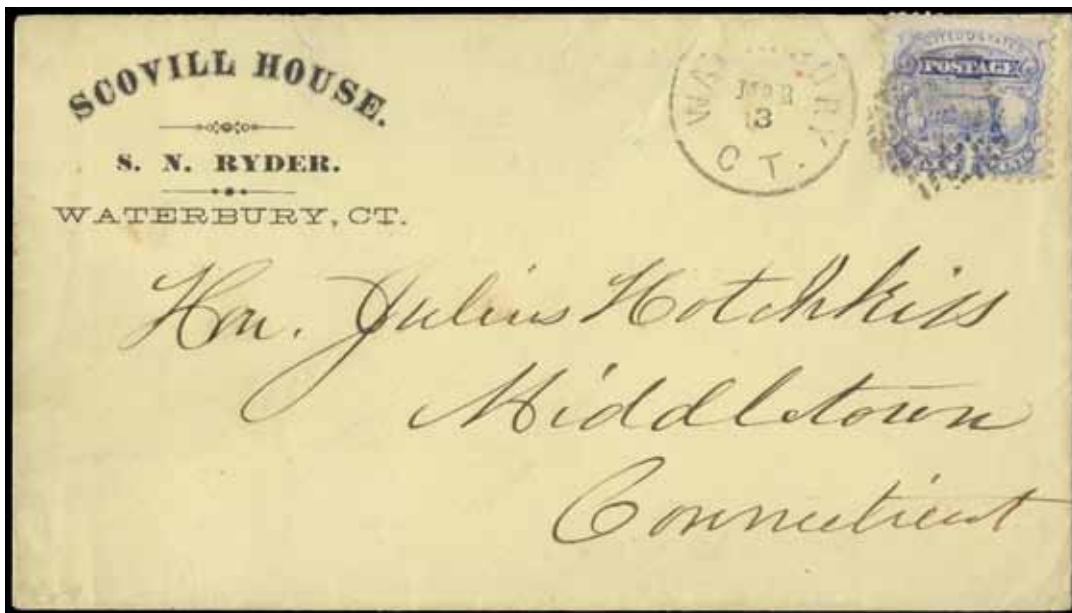 SCOVILL HOUSE.
S. N. RYDER.
WATERBURY, CT.
WATERBURY
MAR
13
CT.
UNITED STATES
POSTAGE
Hon. Julius Hotchkiss
Middletown
Connecticut